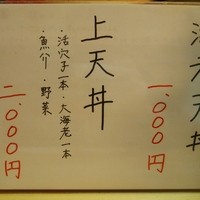 天丼
一.000円
上天丼
・活穴子一本・大海老一本
・魚介・野菜
二.000円